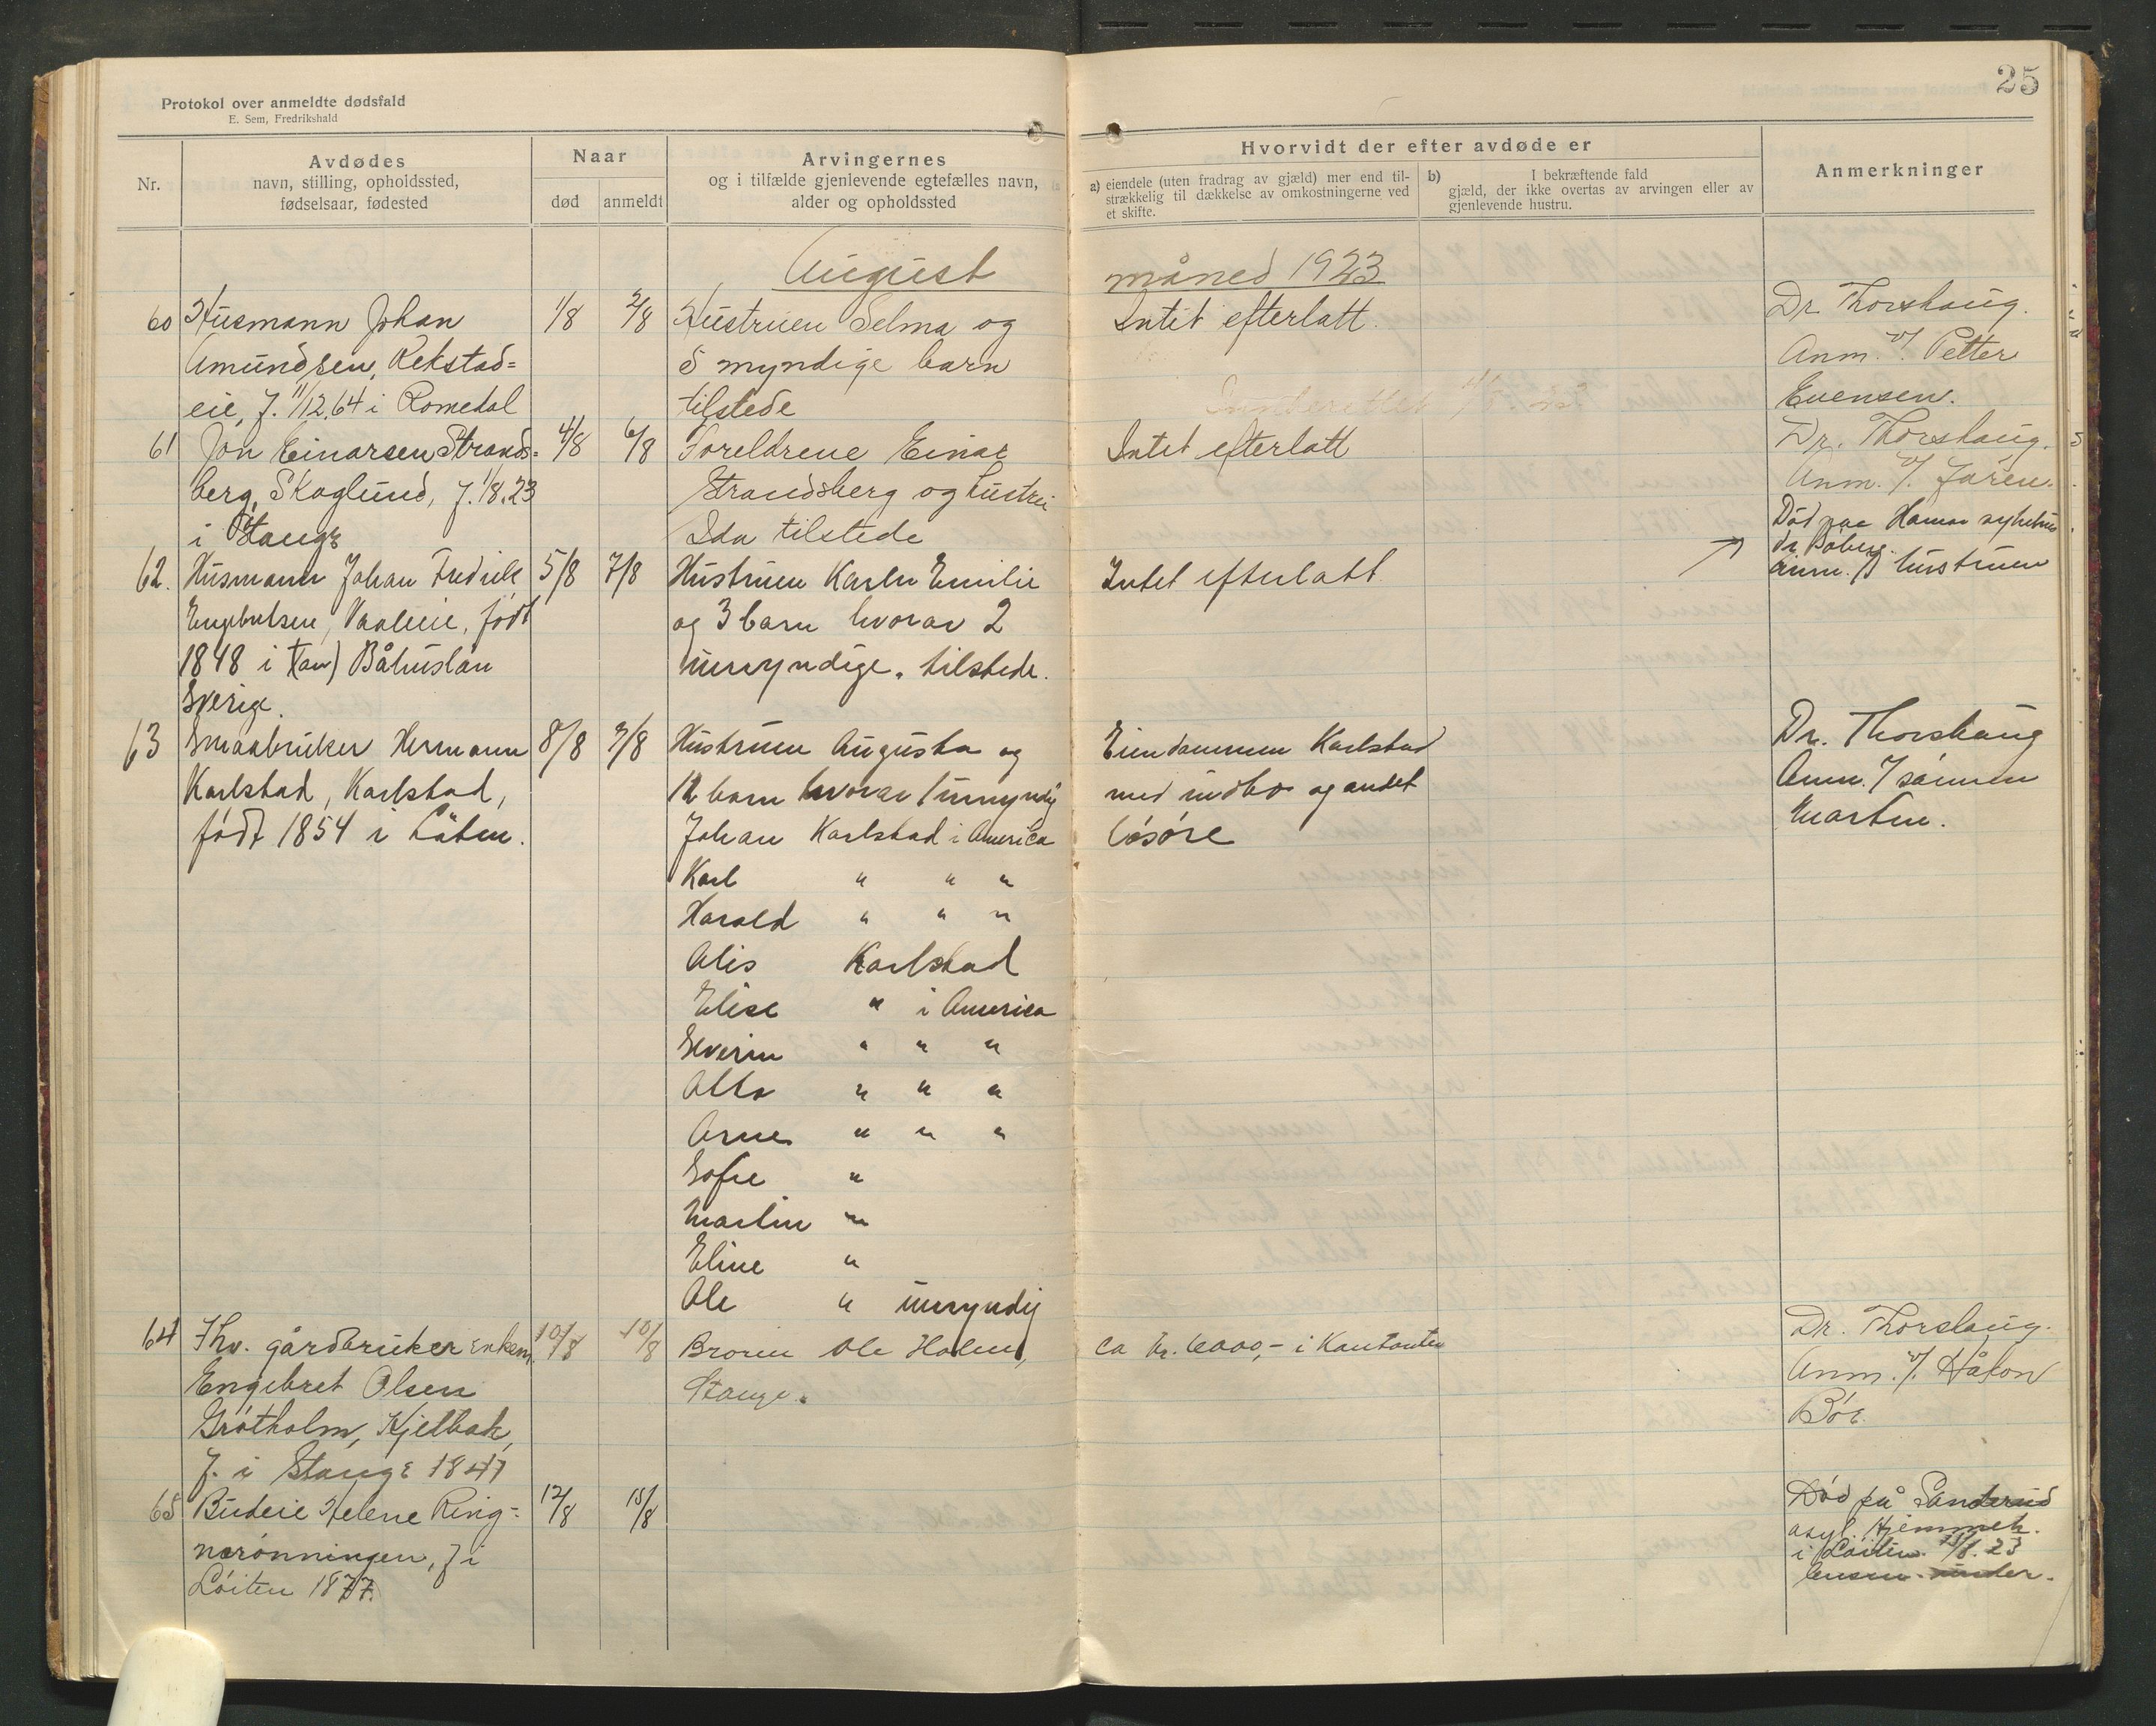 25
Protokol over anmeldte dødsfald
E. Sem, Fredrikshald
Nr.
Avdødes
navn, stilling, opholdssted,
fødselsaar, fødested
Naar
død
anmeldt
Arvingernes
og i tilfælde gjenlevende egtefælles navn,
alder og opholdssted
Hvorvidt der efter avdøde er
a) eiendele (uten fradrag av gjæld) mer end til-
strækkelig til dækkelse av omkostningerne ved
et skifte.
b) I bekræftende fald
gjæld, der ikke overtas av arvingen eller av
gjenlevende hustru.
Anmerkninger
August måned 1923
60 Husmann Johan 1/8 2/8 Hustruen Selma og Intet efterlatt. Dr. Thorshaug.
Amundsen, Rekstad= 5 myndige barn Anm. v/. Petter
eie, f. 11/12.64 i Romedal tilstede Evensen.
61 Jon Einarsen Strands= 4/8 6/8 Foreldrene Einar Intet efterlatt Dr. Thorshaug.
berg, Skoglund, f. 1/8.23 Strandsberg og hustru Anm. v/. Jøren.
i Stange Ida tilstede
62. Husmann Johan Fredrik 5/8 7/8 Hustruen Karen Emilie Intet efterlatt Død paa Hamar sykehus
dr.
Engebretsen, Vaaleie, født og 3 barn hvorav 2 anm. v/ hustruen
1848 i Båhuslän umyndige, tilstede.
Sverige.
63 Smaabruker Hermann 8/8 9/8 Hustruen Augusta og Eiendommen Karlstad Dr. Thorshaug
Karlstad, Karlstad, 12 barn hvorav 1 umyndig med indbo og andet Anm. v/ sønnen
født 1854 i Løten. Johan Karlstad i America løsøre Martin.
Karl " " "
Harald " " "
Alis Karlstad
Elise " i America
Severin " " "
" " "
Arne " " "
Sofie "
Martin "
Eline "
Ole " umyndig
64 Fhv. gårdbruker enkem. 10/8 10/8 Broren Ole Holen, ca kr. 6000,- i Kontanter Dr. Thorshaug.
Engebret Olsen Stange. Anm. v/. Håkon
Grøtholm, Kjelbak, Bøe.
f. i Stange 1847
65 Budeie Helene Ring= 12/8 15/8 Død på Sanderud
nerønningen, f i asyl. Hjemmeh.
Løiten 1877. i Løiten. 15/8.23